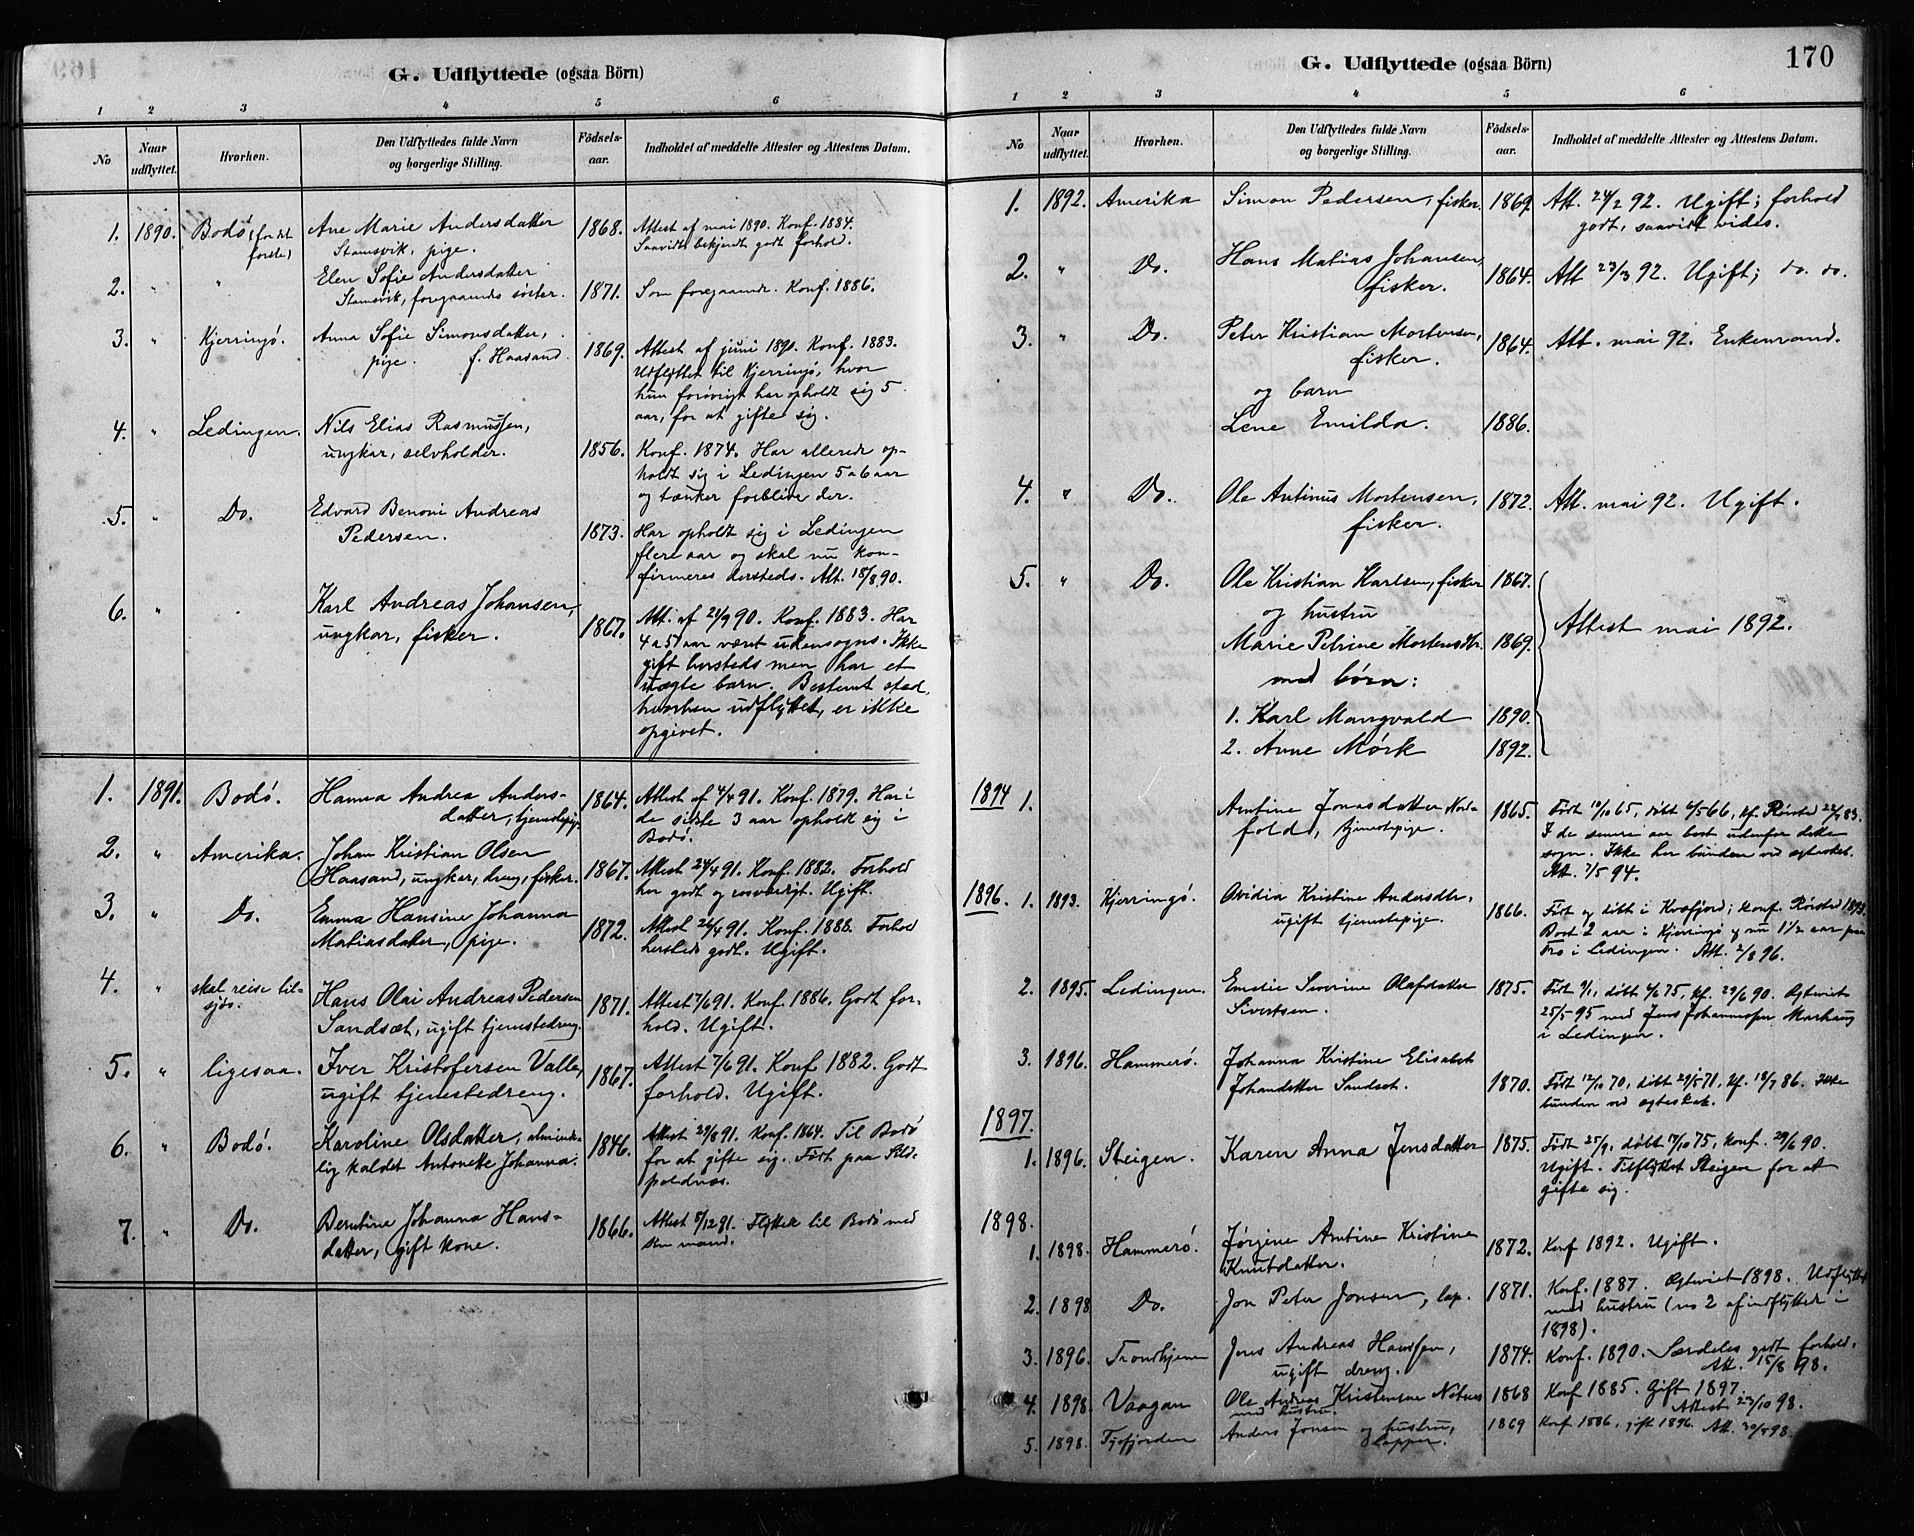 G. Udflyttede (ogsaa Börn)
1 2 3 4 5 6
No Naar udflyttet. Hvorhen. Den Udflyttedes fulde Navn og borgerlige Stilling. Födsels-aar. Indholdet af meddelte Attester og Attestens Datum.
1. 1890. Bodø (for det første) Ane Marie Andersdatter 1868. Attest af mai 1890. Konf. 1884.
Stamsvik, pige. Saavidt bekjendt godt forhold.
2. " " Elen Sofie Andersdatter
Stamsvik, foregaaende søster. 1871. Som foregaaende. Konf. 1886.
3. " Kjerringø. Anna Sofie Simonsdatter,
pige. f. Haasand. 1869. Attest af juni 1890. Konf. 1883.
Udflyttet til Kjerringø, hvor
hun forøvrigt har opholdt sig 5
aar, for at gifte sig.
4. " Lødingen. Nils Elias Rasmussen,
ungkar, selvholder. 1856. Konf. 1874. Har allerede op-
holdt sig i Lødingen 5 a 6 aar
og tænker forblive der.
5. " Do. Edvard Benoni Andreas
Pedersen. 1873. Har opholdt sig i Lødingen
flere aar og skal nu kon-
firmeres dersteds. Att. 18/8 90.
6. " . Karl Andreas Johansen,
ungkar, fisker. 1867. Att. af 21/9 90. Konf. 1883. Har
4 a 5 aar været udensogns. Ikke
gift hersteds men har et
uægte barn. Bestemt sted,
hvorhen udflyttet, er ikke
opgivet.
1. 1891. Bodø. Hanna Andrea Anders-
datter, tjenestepige. 1864. Attest af 4/4 91. Konf. 1879. Har i
de sidste 3 aar opholdt sig i
Bodø.
2. " Amerika. Johan Kristian Olsen
Haasand, ungkar, dreng, fisker. 1867. Attest 24/4 91. Konf. 1882. Forhold
her godt og rosværdigt. Ugift.
3. " Do. Emma Hansine Johanna
Matiasdatter, pige. 1872. Attest 26/4 91. Konf. 1888. Forhold
hersteds godt. Ugift.
4. " skal reise til-
sjøs. Hans Olai Andreas Pedersen
Sandsæt, ugift tjenestedreng. 1871. Attest 7/6 91. Konf. 1886. Godt for-
hold. Ugift.
5. " ligesaa. Iver Kristofersen Valle,
ugift tjenestedreng. 1867. Attest 7/6 91. Konf 1882. Godt
forhold. Ugift.
6. " Bodø. Karoline Olsdatter, alminde-
lig kaldet Antonette Johanna. 1846. Attest 29/8 91. Konf. 1864. Til Bodø
for at gifte sig. Født paa Sild-
poldnæs.
7. " Do. Berntine Johanna Hans-
datter, gift kone. 1866. Attest 5/12 91. Flytter til Bodø med
sin mand.
G. Udflyttede (ogsaa Börn) 170
1 2 3 4 5 6
No Naar udflyttet. Hvorhen. Den Udflyttedes fulde Navn og borgerlige Stilling. Födsels-aar. Indholdet af meddelte Attester og Attestens Datum.
1. 1892. Amerika Simon Pedersen, fisker. 1869. Att. 24/2 92. Ugift; forhold
godt, saavidt vides.
2. " Do. Hans Matias Johansen,
fisker. 1864. Att 23/3 92. Ugift; do. do.
3. " Do. Peter Kristian Mortensen,
fisker. 1864. Att. mai 92. Enkemand.
og barn
Lene Emilda. 1886.
4. " Do. Ole Antinus Mortensen,
fisker. 1872. Att. mai 92. Ugift.
5. " Do. Ole Kristian Karlsen, fisker 1867.
og hustru
Marie Petrine Mortensdtr. 1869. Attest mai 1892.
med børn:
1. Karl Mangvald 1890.
2. Arne Mørk 1892.
1894 1. Amtine Jonasdatter Nord-
fold, tjenestepige. 1865. Født 19/10 65, døbt 6/5 66, kf. Rørstad 22/7 83.
I de senere aar boet udenfor dette
sogn. Ikke her bunden ved egteskab.
Att. 1/5 94.
1896. 1. 1893. Kjerringø. Ovidia Kristine Andersdtr,
ugift tjenestepige. 1866. Født og døbt i Kvæfjord; konf. Rørstad 1893.
Boet 2 aar i Kjerringø og nu 1 1/2 aar paa
Trø i Lødingen. Att. 2/8 96.
2. 1895. Lødingen. Emelie Severine Olafdatter
Sivertsen. 1875. Født 9/1, døbt 6/6 75, kf. 29/6 90. Egteviet
25/5 95 med Jens Johannesen Marhaug
i Lødingen.
3. 1896. Hammerø. Johanna Kristine Elisabet
Johandatter Sandset. 1870. Født 12/10 70, døbt 29/5 71, kf. 18/7 86. Ikke
bunden ved egteskab.
1897.
1. 1896. Steigen. Karen Anna Jensdatter 1875. Født 25/9, døbt 17/10 75, konf. 29/6 90.
Ugift. Tilflyttet Steigen for at
gifte sig.
1898.
1. 1898. Hammerø. Jørgine Amtine Kristine
Knutdatter. 1872. Konf 1892. Ugift.
2. 1898 Do. Jon Peter Jonsen, lap. 1871. Konf. 1887. Egteviet 1898. Udflyttet
med hustru (no 2 af indflyttede i
1898).
3. 1896. Trondhjem Jens Andreas Hanssen,
ugift dreng. 1874. Konf. 1890. Særdeles godt forhold.
Att. 15/8 98.
4. 1898. Vaagan Ole Andreas Kristensen Notnæs
med hustru. 1868 Konf 1885. Gift 1897.
Attest 23/10 98.
5. 1898. Tysfjorden Anders Jonsen og hustru,
Lapper. 1869 Konf 1886, gift 1896. Att. 30/5 98.